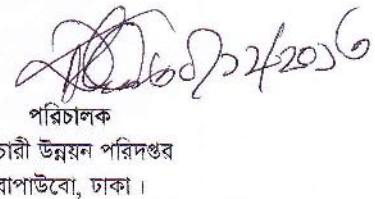 পরিচালক
চারী উন্নয়ন পরিদপ্তর
বাপাউবো, ঢাকা।